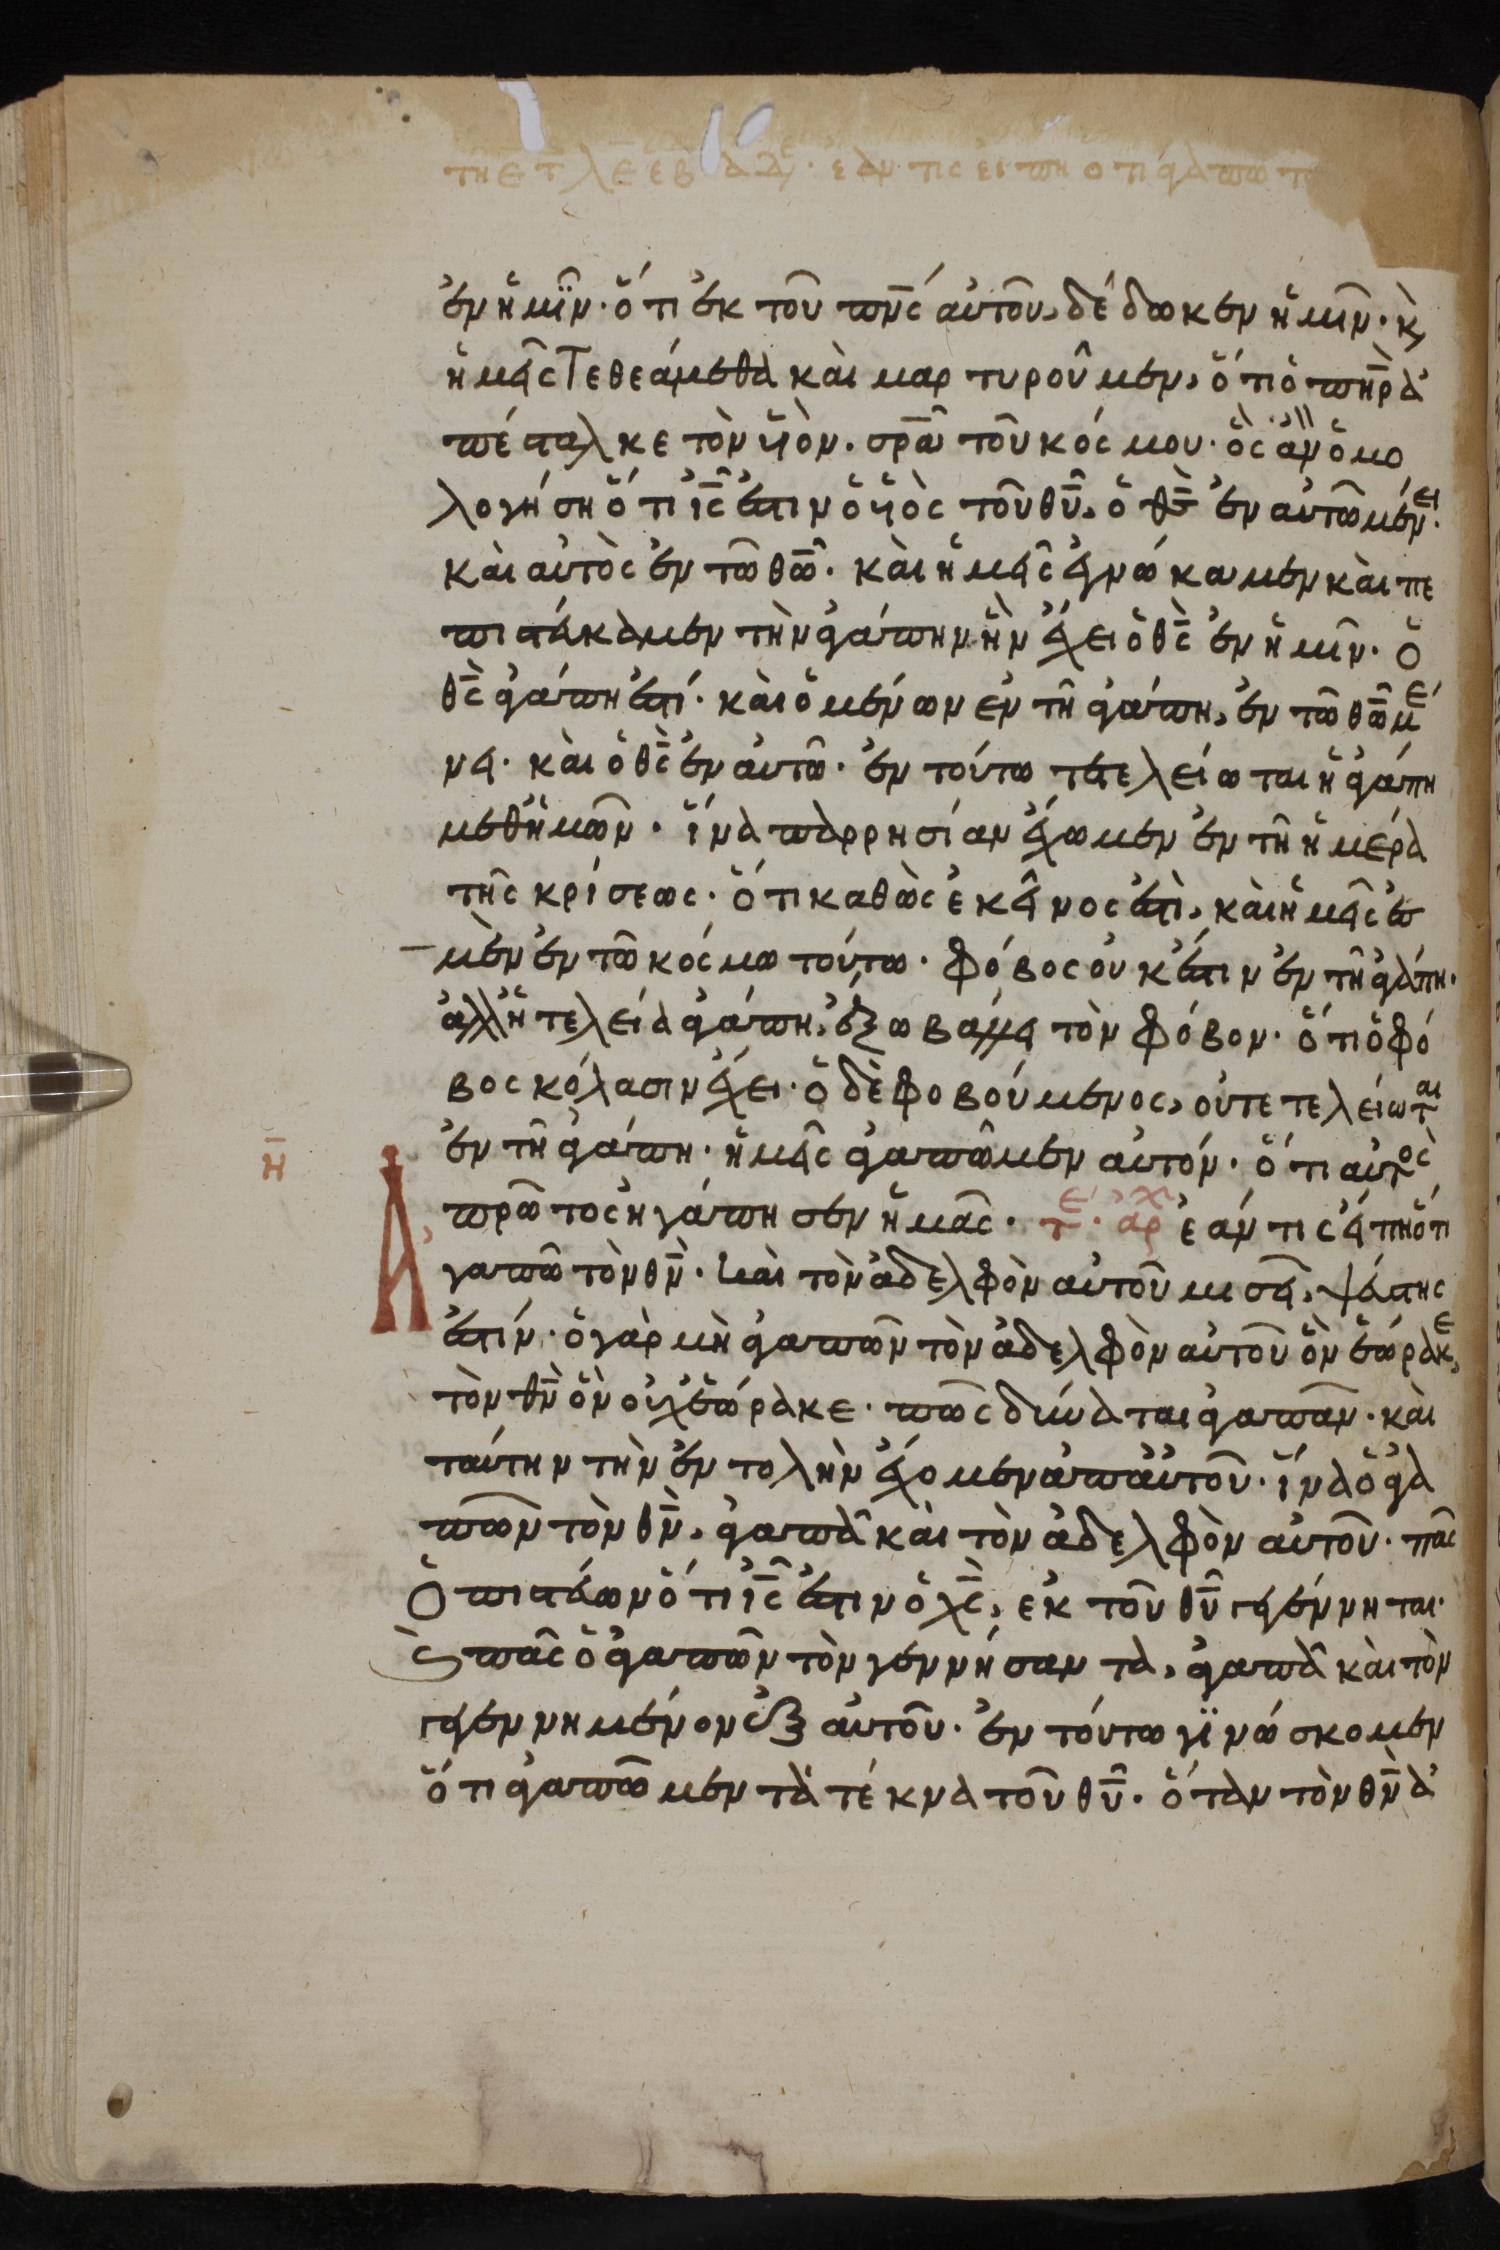 τη ε τ λε εβ δ αδ· εαν τις ειπη οτι αγαπω τ
ἐν ἡμῖν· ὅτι ἐκ τοῦ πνς αὐτοῦ, δέδωκεν ἡμῖν· κ
ἡμεῖς τεθεάμεθα καὶ μαρτυροῦμεν, ὅτι ὁ πηρ ἀ
πέσταλκε τὸν υἱὸν. σρα τοῦ κόσμου· ὃς ἂν ὁμο
λογήση ὅτι ις ἐστιν ὁ υἱὸς τοῦ θυ, ὁ θς ἐν αὐτῶ μένει·
καὶ αὐτὸς ἐν τῶ θω· καὶ ἡμεῖς ἐγνώκαμεν καὶ πε
πιστεύκαμεν τὴν ἀγάπην ἣν ἔχει ὁ θς ἐν ἡμῖν· ὁ
θς ἀγάπη ἐστί· καὶ ὁ μένων ἐν τῆ ἀγάπη, ἐν τῶ θω μέ
νει· καὶ ὁ θς ἐν αὐτῶ· ἐν τούτω τετελείωται ἡ ἀγάπη
μεθ ἡμῶν· ἵνα παρρησίαν ἔχωμεν ἐν τῆ ἡμέρα
τῆς κρίσεως· ὅτι καθὼς ἐκεῖνος ἐστὶ, καὶ ἡμεῖς ἐσ
μὲν ἐν τῶ κόσμω τούτω· φόβος οὐκ ἔστιν ἐν τῆ ἀγάπη·
ἀλλ ἡ τελεία ἀγάπη, ἔξω βάλλει τὸν φόβον· ὅτι ὁ φό
βος κόλασιν ἔχει· ὁ δὲ φοβούμενος, οὐ τετελείωται
ἐν τῆ ἀγάπη· ἡμεῖς ἀγαπῶμεν αὐτόν· ὅτι αὐτὸς
η
πρῶτος ἠγάπησεν ἡμᾶς· τε· αρχ ἐάν τις εἴπη ὅτι
Ἀγαπῶ τὸν θν· καὶ τὸν ἀδελφὸν αὐτοῦ μισεῖ, ψεύστης
ἐστίν· ὁ γὰρ μὴ ἀγαπῶν τὸν ἀδελφὸν αὐτοῦ ὃν ἑώρακε,
τὸν θν ὃν οὐχ ἑώρακε· πῶς δύναται ἀγαπᾶν· καὶ
ταύτην τὴν ἐντολὴν ἔχομεν ἀπ αὐτοῦ· ἵνα ὁ ἀγα
πῶν τὸν θν, ἀγαπᾶ καὶ τὸν ἀδελφὸν αὐτοῦ· πᾶς
ὁ πιστεύων ὅτι ις ἐστιν ὁ χς, ἐκ τοῦ θυ γεγέννηται·
κ πᾶς ὁ ἀγαπῶν τὸν γεννήσαντα, ἀγαπᾶ καὶ τὸν
γεγεννημένον ἐξ αὐτοῦ· ἐν τούτω γϊνώσκομεν
ὅτι ἀγαπῶμεν τὰ τέκνα τοῦ θυ· ὅταν τὸν θν ἀ